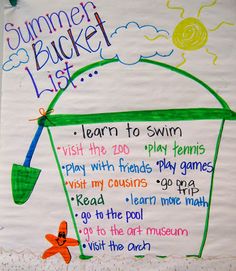 Summer
Bucket
List...
• learn to swim
• visit the zoo • play tennis
• play with friends • play games
• visit my cousins • go on a
trip
• Read • learn more math
• go to the pool
• go to the art museum
• visit the arch